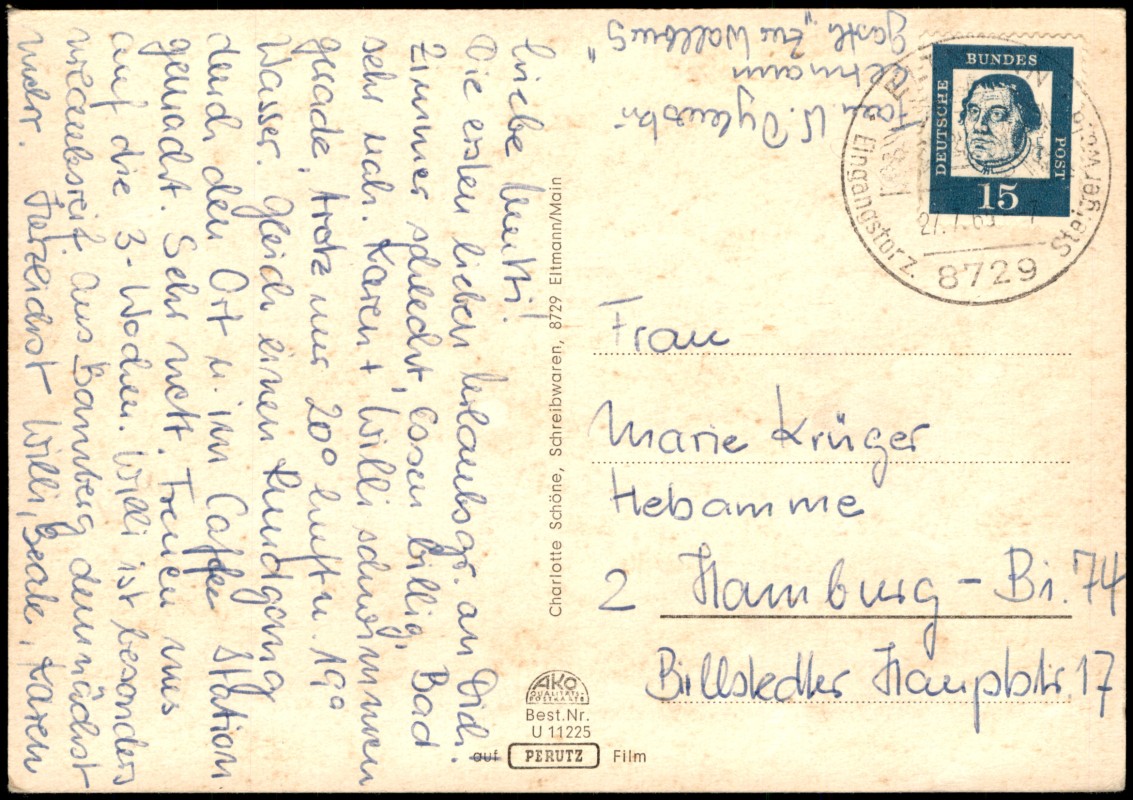 Liebe Mutti!
Die ersten lieben Urlaubsgr. an Dich.
Zimmer schlecht, Essen billig, Bad
sehr nah. Karen + Willi schwimmen
gerade, trotz nur 20° Luft u. 19°
Wasser. Gleich einen Rundgang
durch den Ort u. im Caffee Station
gemacht. Sehr nett. Freuen uns
auf die 3-Wochen. Willi ist besonders
urlaubsreif. Aus Bamberg demnächst
mehr. Herzlichst Willi, Beate, Karen
Frau
Eltmann
Gasth. „Zur Wallburg"
DEUTSCHE BUNDES POST
15
Eingangstor z. Steigerwald
27.7.63
8729
Charlotte Schöne, Schreibwaren, 8729 Eltmann/Main
Frau
Marie Krüger
Hebamme
2 Hamburg - Bi. 74
Billstedter Hauptstr. 17
AKO
QUALITÄTS-
POSTKARTE
Best.Nr.
U 11225
auf PERUTZ Film